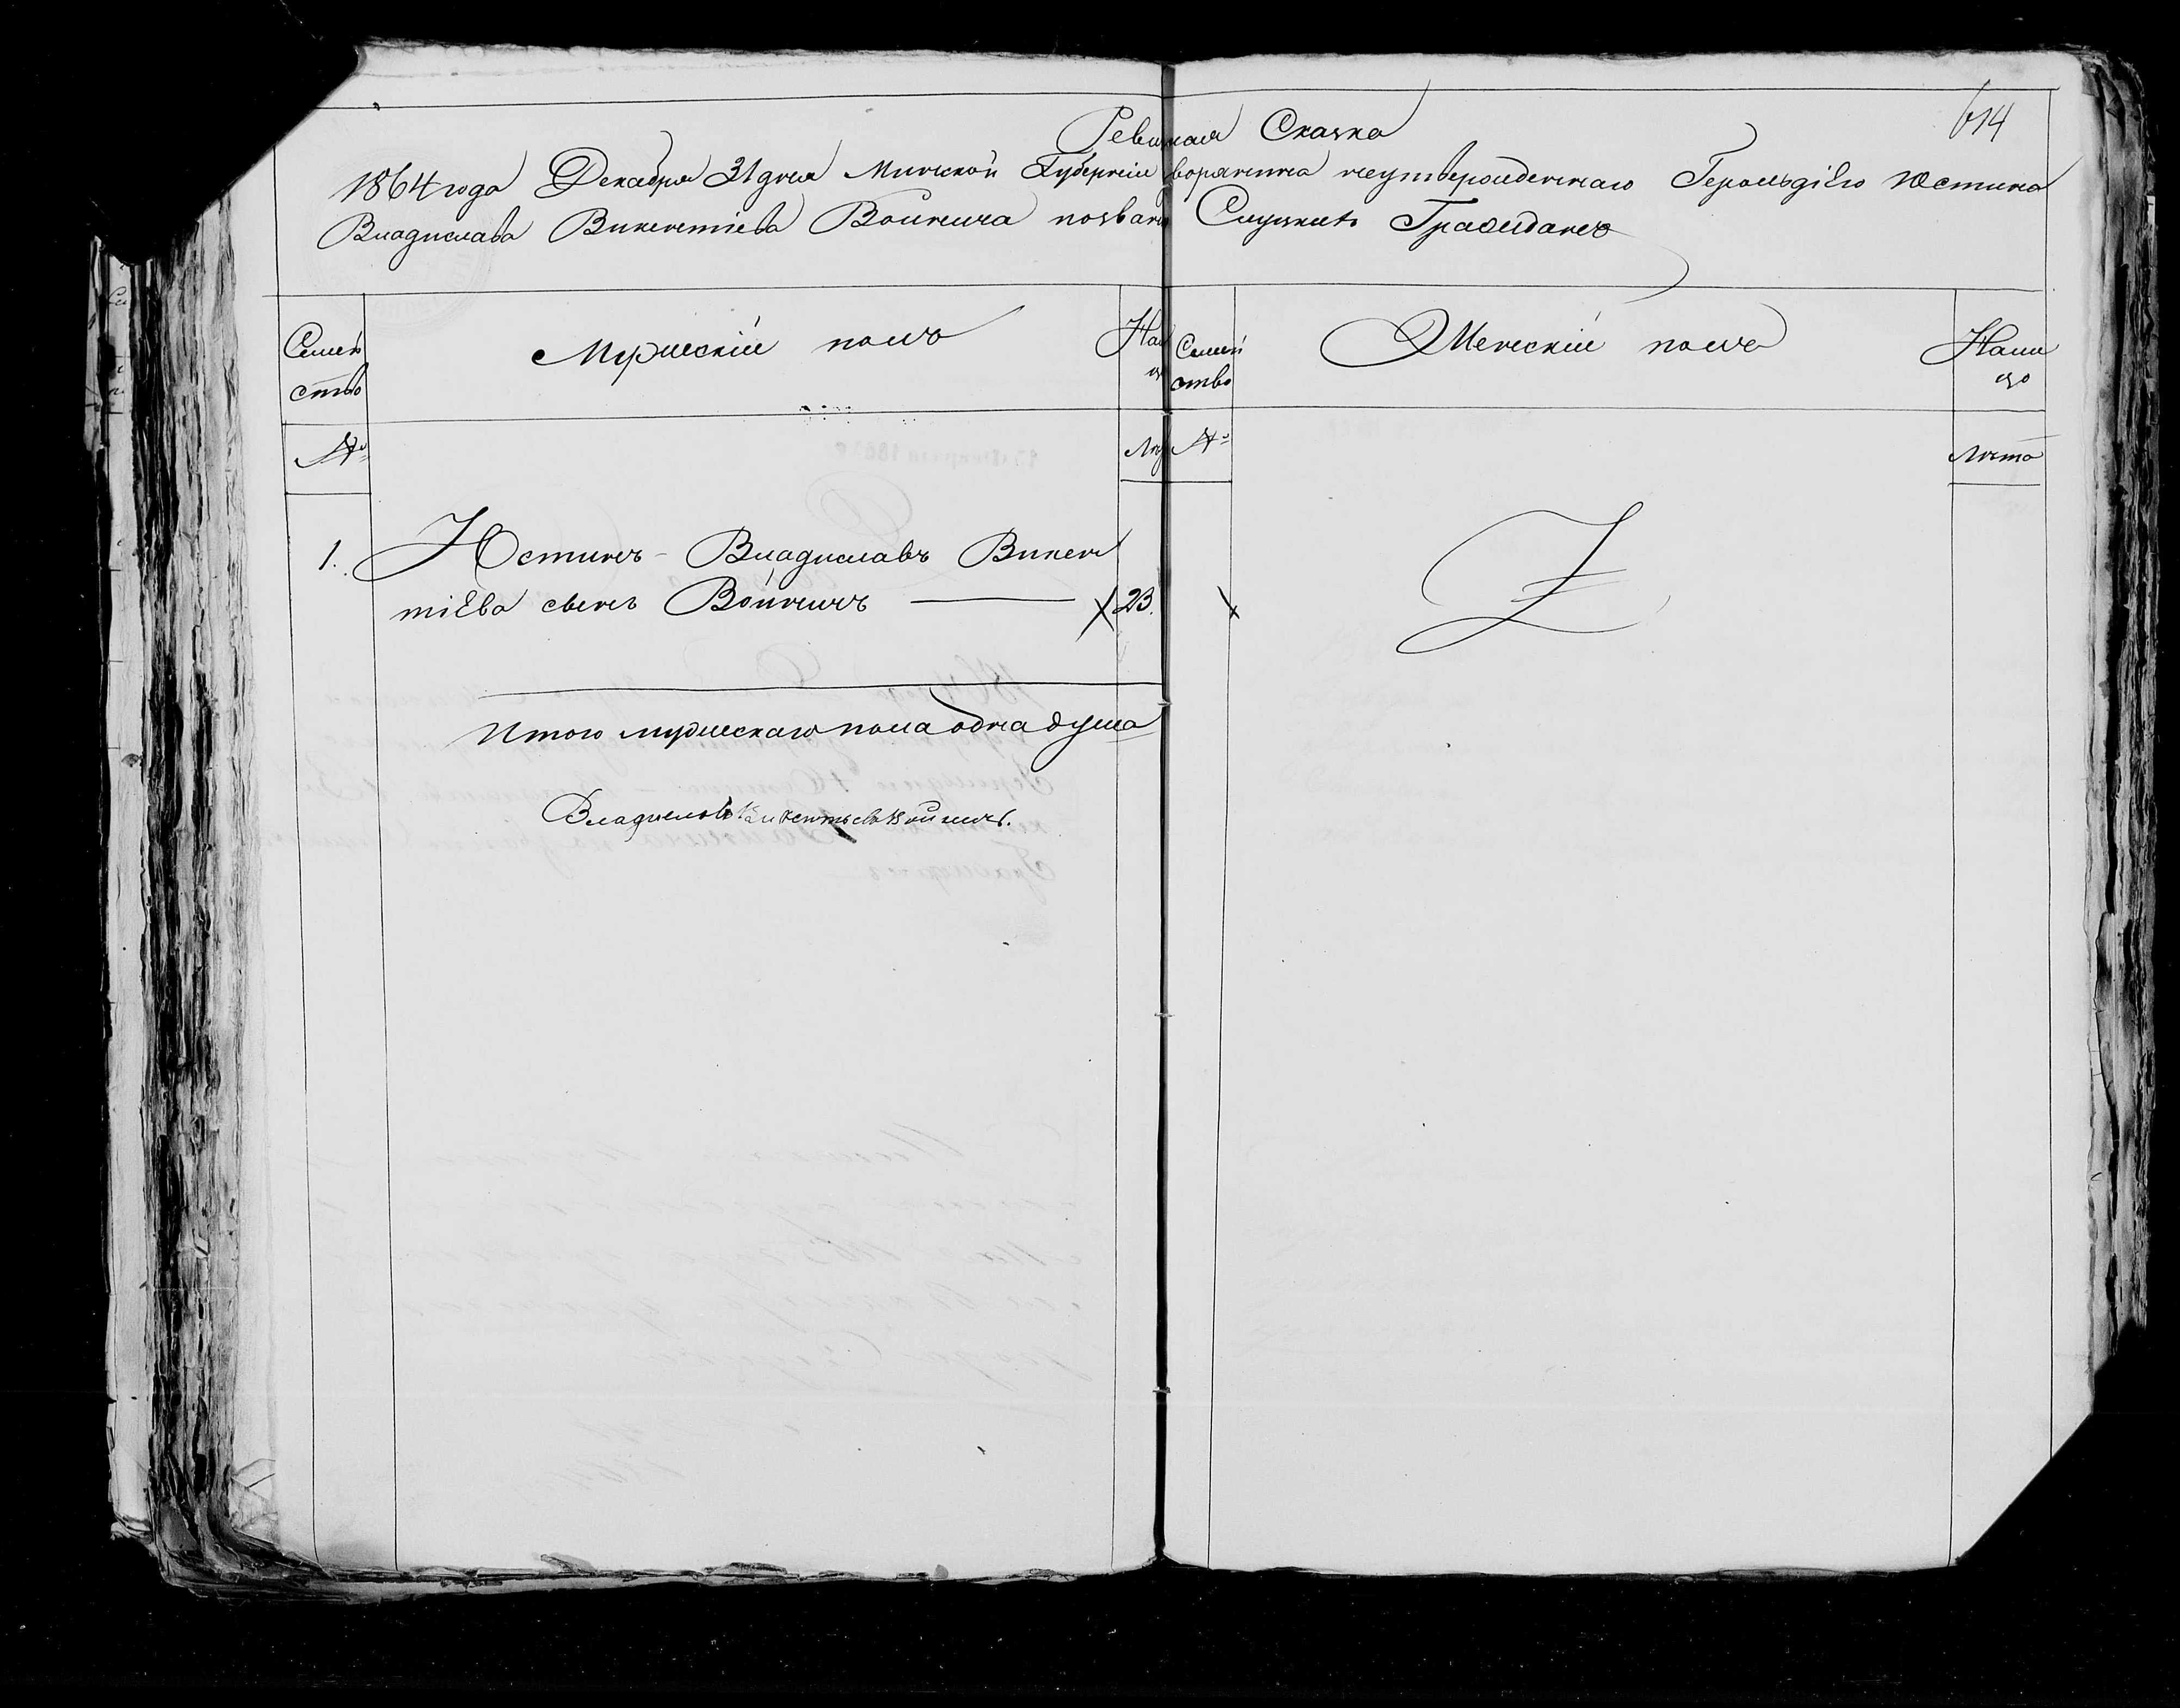 614
Ревизкая Сказка
1864 года Декабря 31 дня Минской Губерніи дворянина неутвержденнаго Герольдіею Юстина
Владислава Викентіева Войнича по званію Слуцкихъ Гражданъ
Семей
ство
Мужескій полъ
На
Семей
ство
Женскій полъ
На ли
цо
№
Лѣ
№
Лѣта
1. Юстинъ - Владиславъ Викен
тіева сынъ Войничъ 23.
Итого мужескаго пола одна душа
Владиславъ Викентьевъ Войничъ.